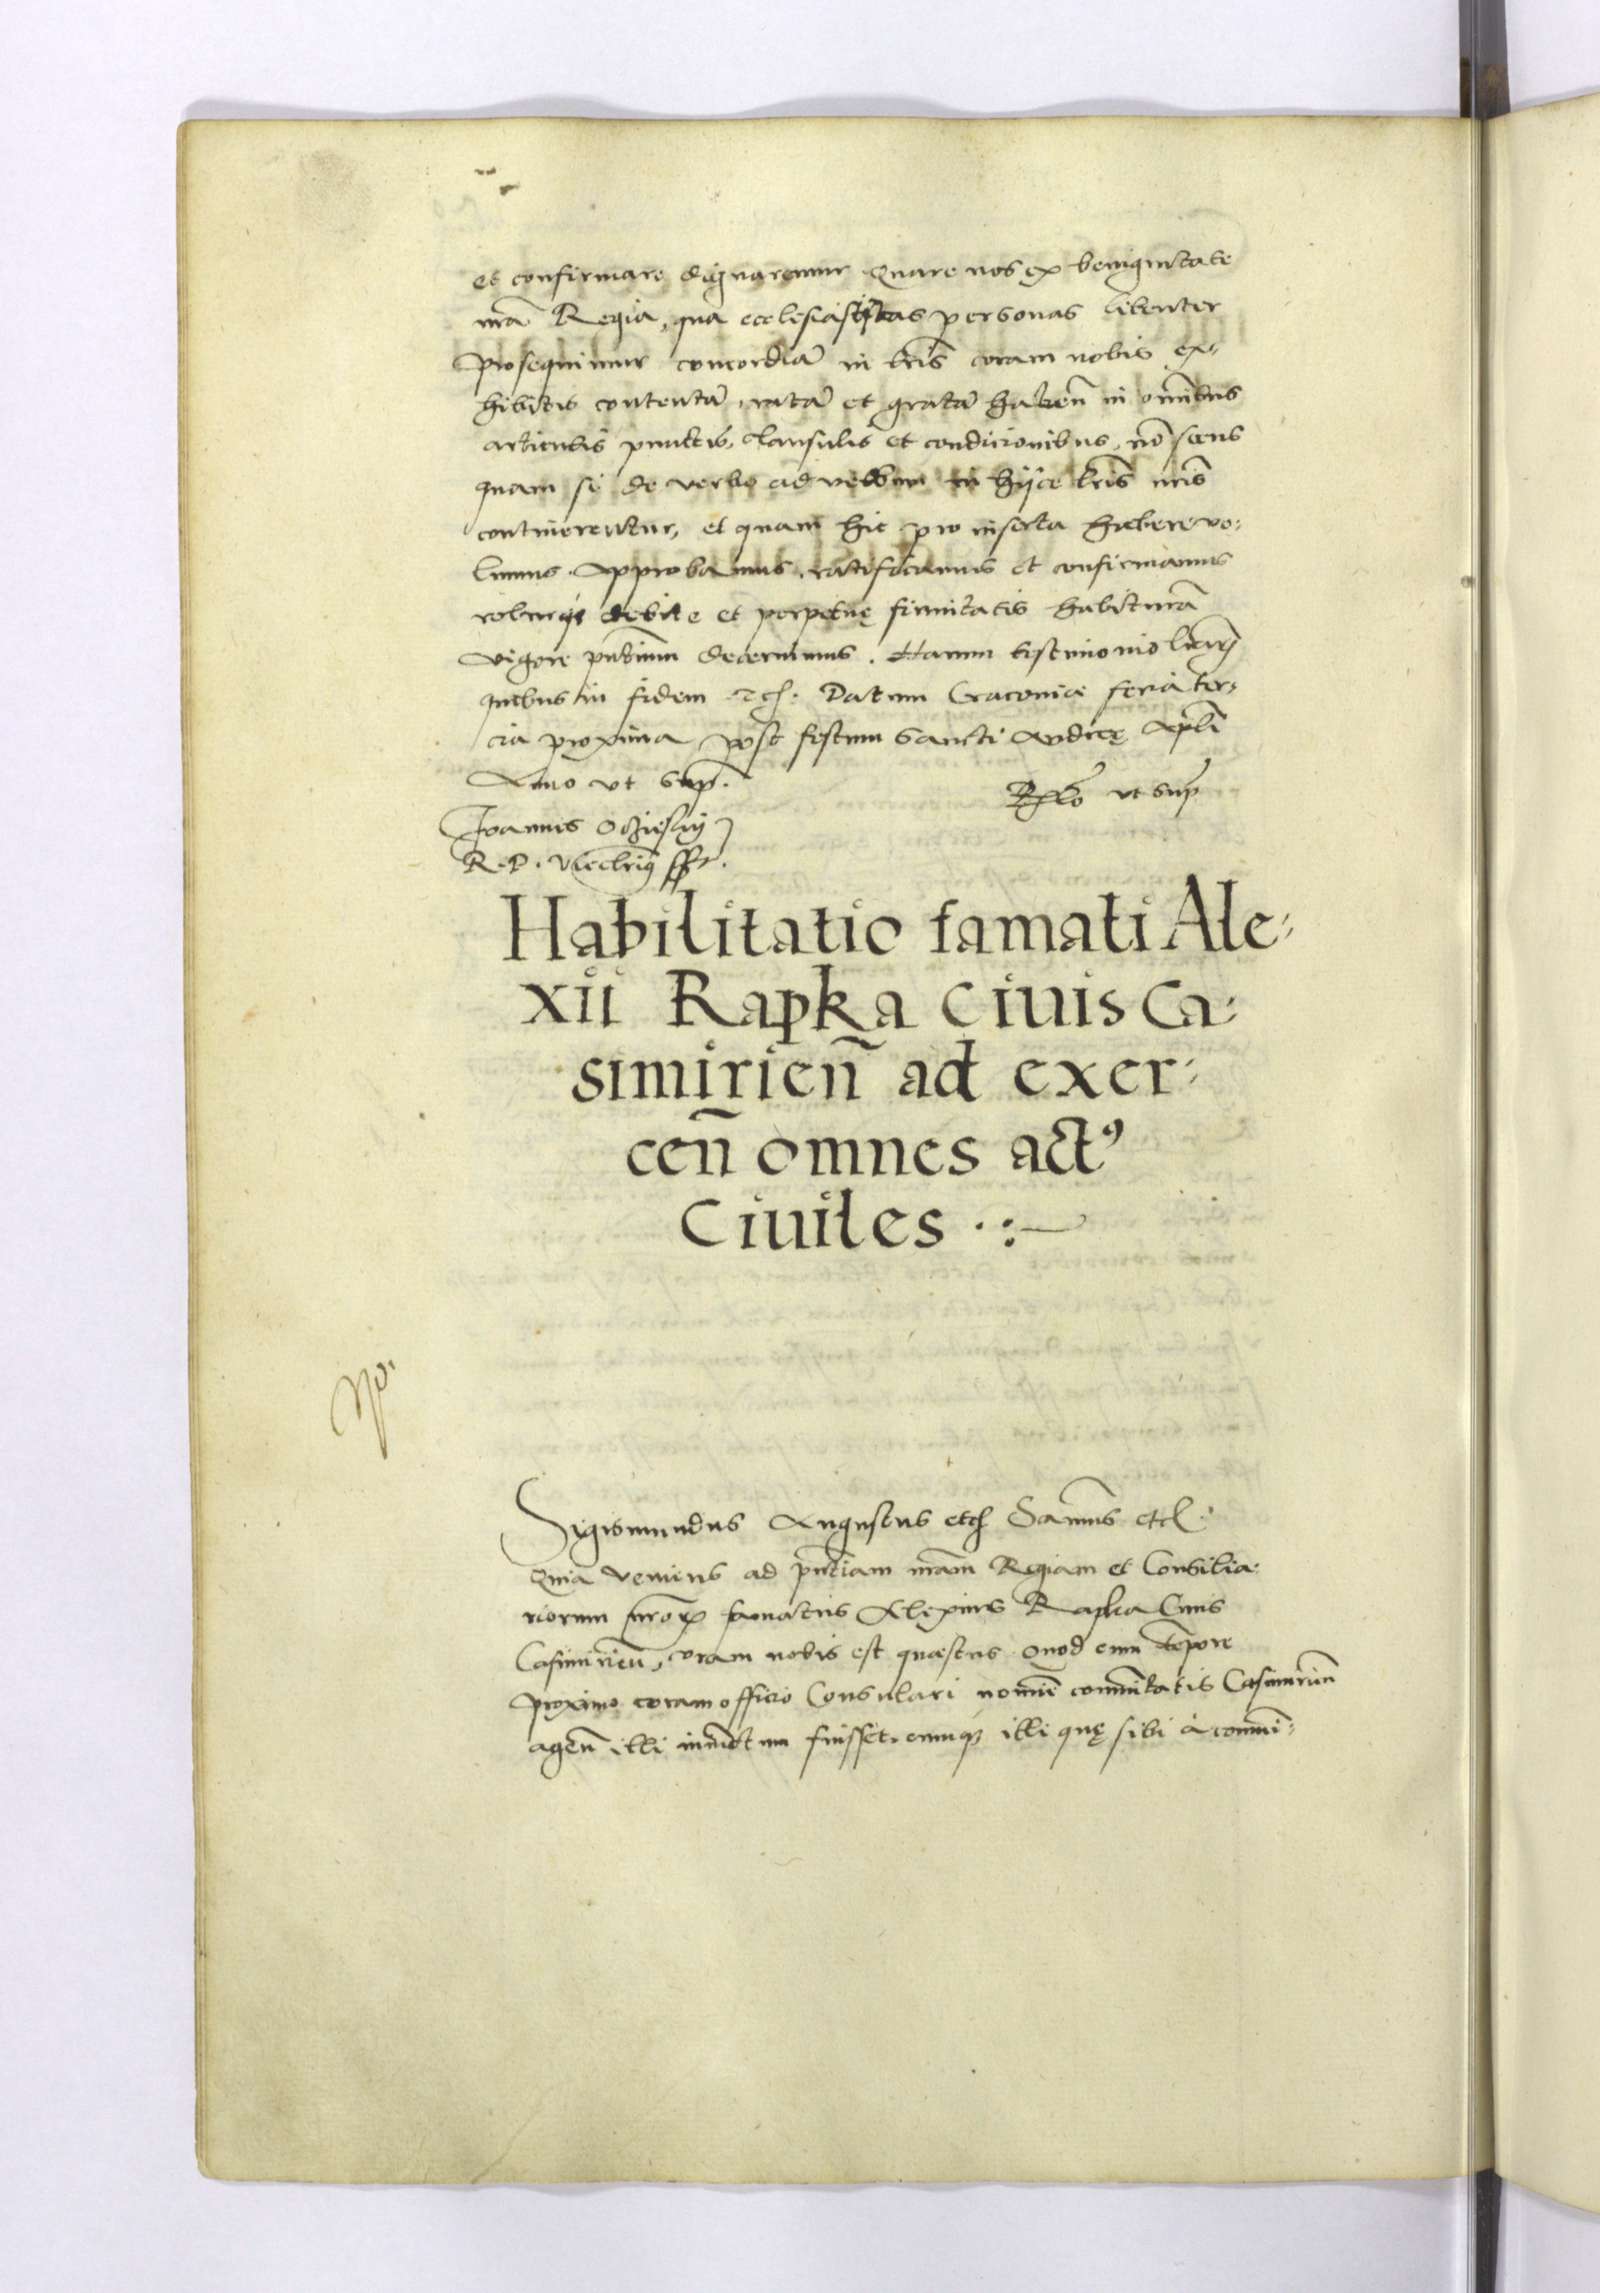 et confirmare dignaremur Quare nos ex benignitate
nrã Regia, qua ecclesiasticas personas libenter
prosequimur concordiã in lris coram nobis ex-
hibitis contentã, ratã et gratã haben̄ in omibus
articulis punctis, clausulis et condicionibus, nõ secus
quam si de verbo ad verbum in hijce lris nris
continerentur, et quam hic pro inserta habere vo-
lumus. Approbamus, ratificamus et confirmamus
roburq; debite et perpetuę firmitatis habiturã
vigore pntium decernimus. Harum testimonio lrarũ
quibus in fidem etc. Datum Cracoviæ feria ter-
cia proxima post festum Sancti Andreę Apli
Anno ut sup.
Rlo ut sup
Joannes Oczieskij
R. P. Vicecancrius sst.
Habilitatio famati Ale-
xii Rapka Ciuis Ca-
simirien̄ ad exer-
cen̄ omnes act9
Ciuiles
Sigismundus Augustus etc Samus etc.
Quia veniens ad pntiam nram Regiam et Consilia-
riorum nror famatus Alexius Rapka Ciuis
Casimirien̄, coram nobis est questus. Quod cum tempore
proximo coram officio Consulari nomie comunitatis Casimirien̄
agen̄ illi fuisset. cumq; illi quę sibi à comuni-